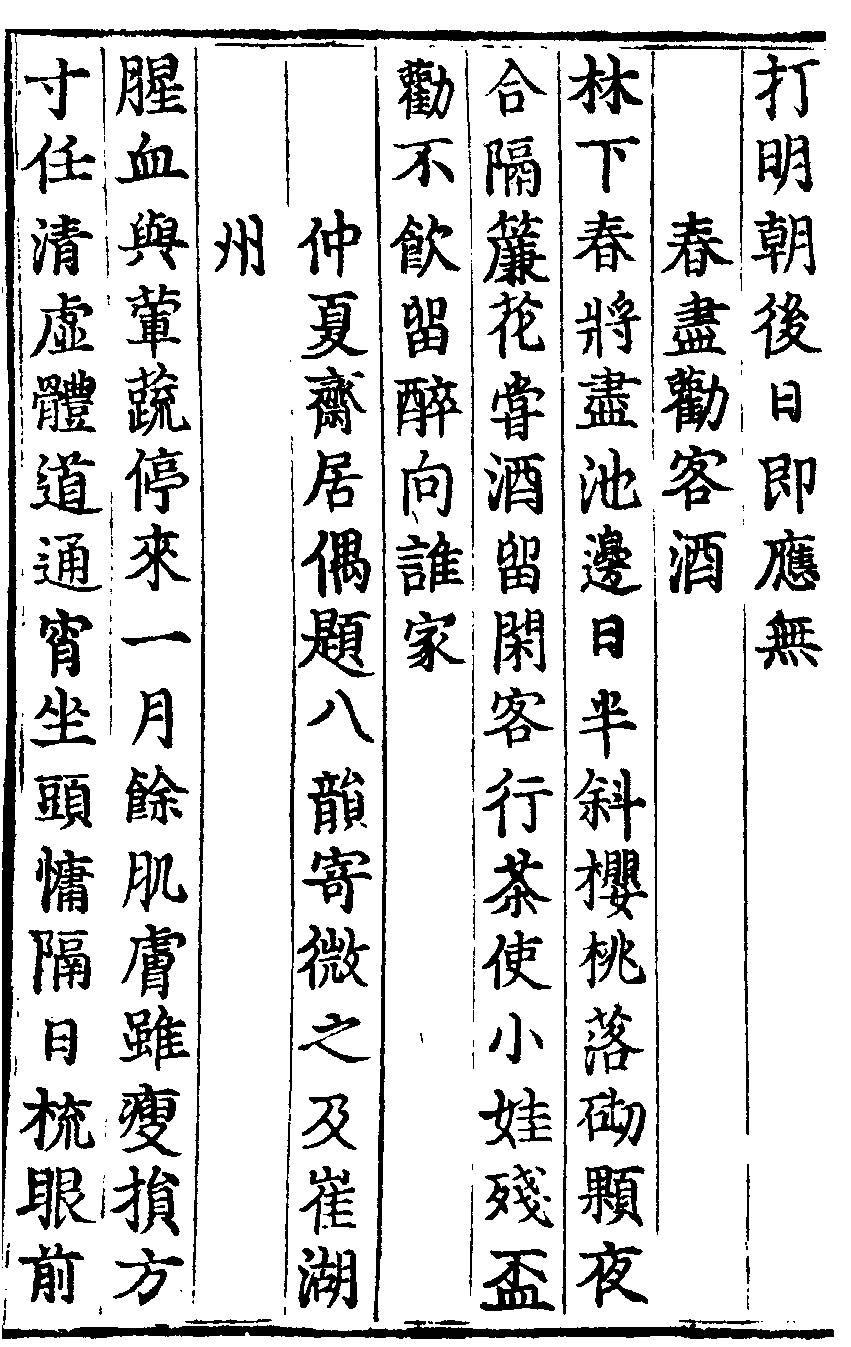 打明朝後日即應無
春盡勸客酒
林下春將盡池邊日半斜櫻桃落砌顆夜
合隔簾花嘗酒留閑客行茶使小娃殘盃
勸不飲留醉向誰家
仲夏齋居偶題八韻寄微之及崔湖
州
腥血與葷蔬停來一月餘肌膚雖瘦損方
寸任清虛體道通宵坐頭慵隔日梳眼前